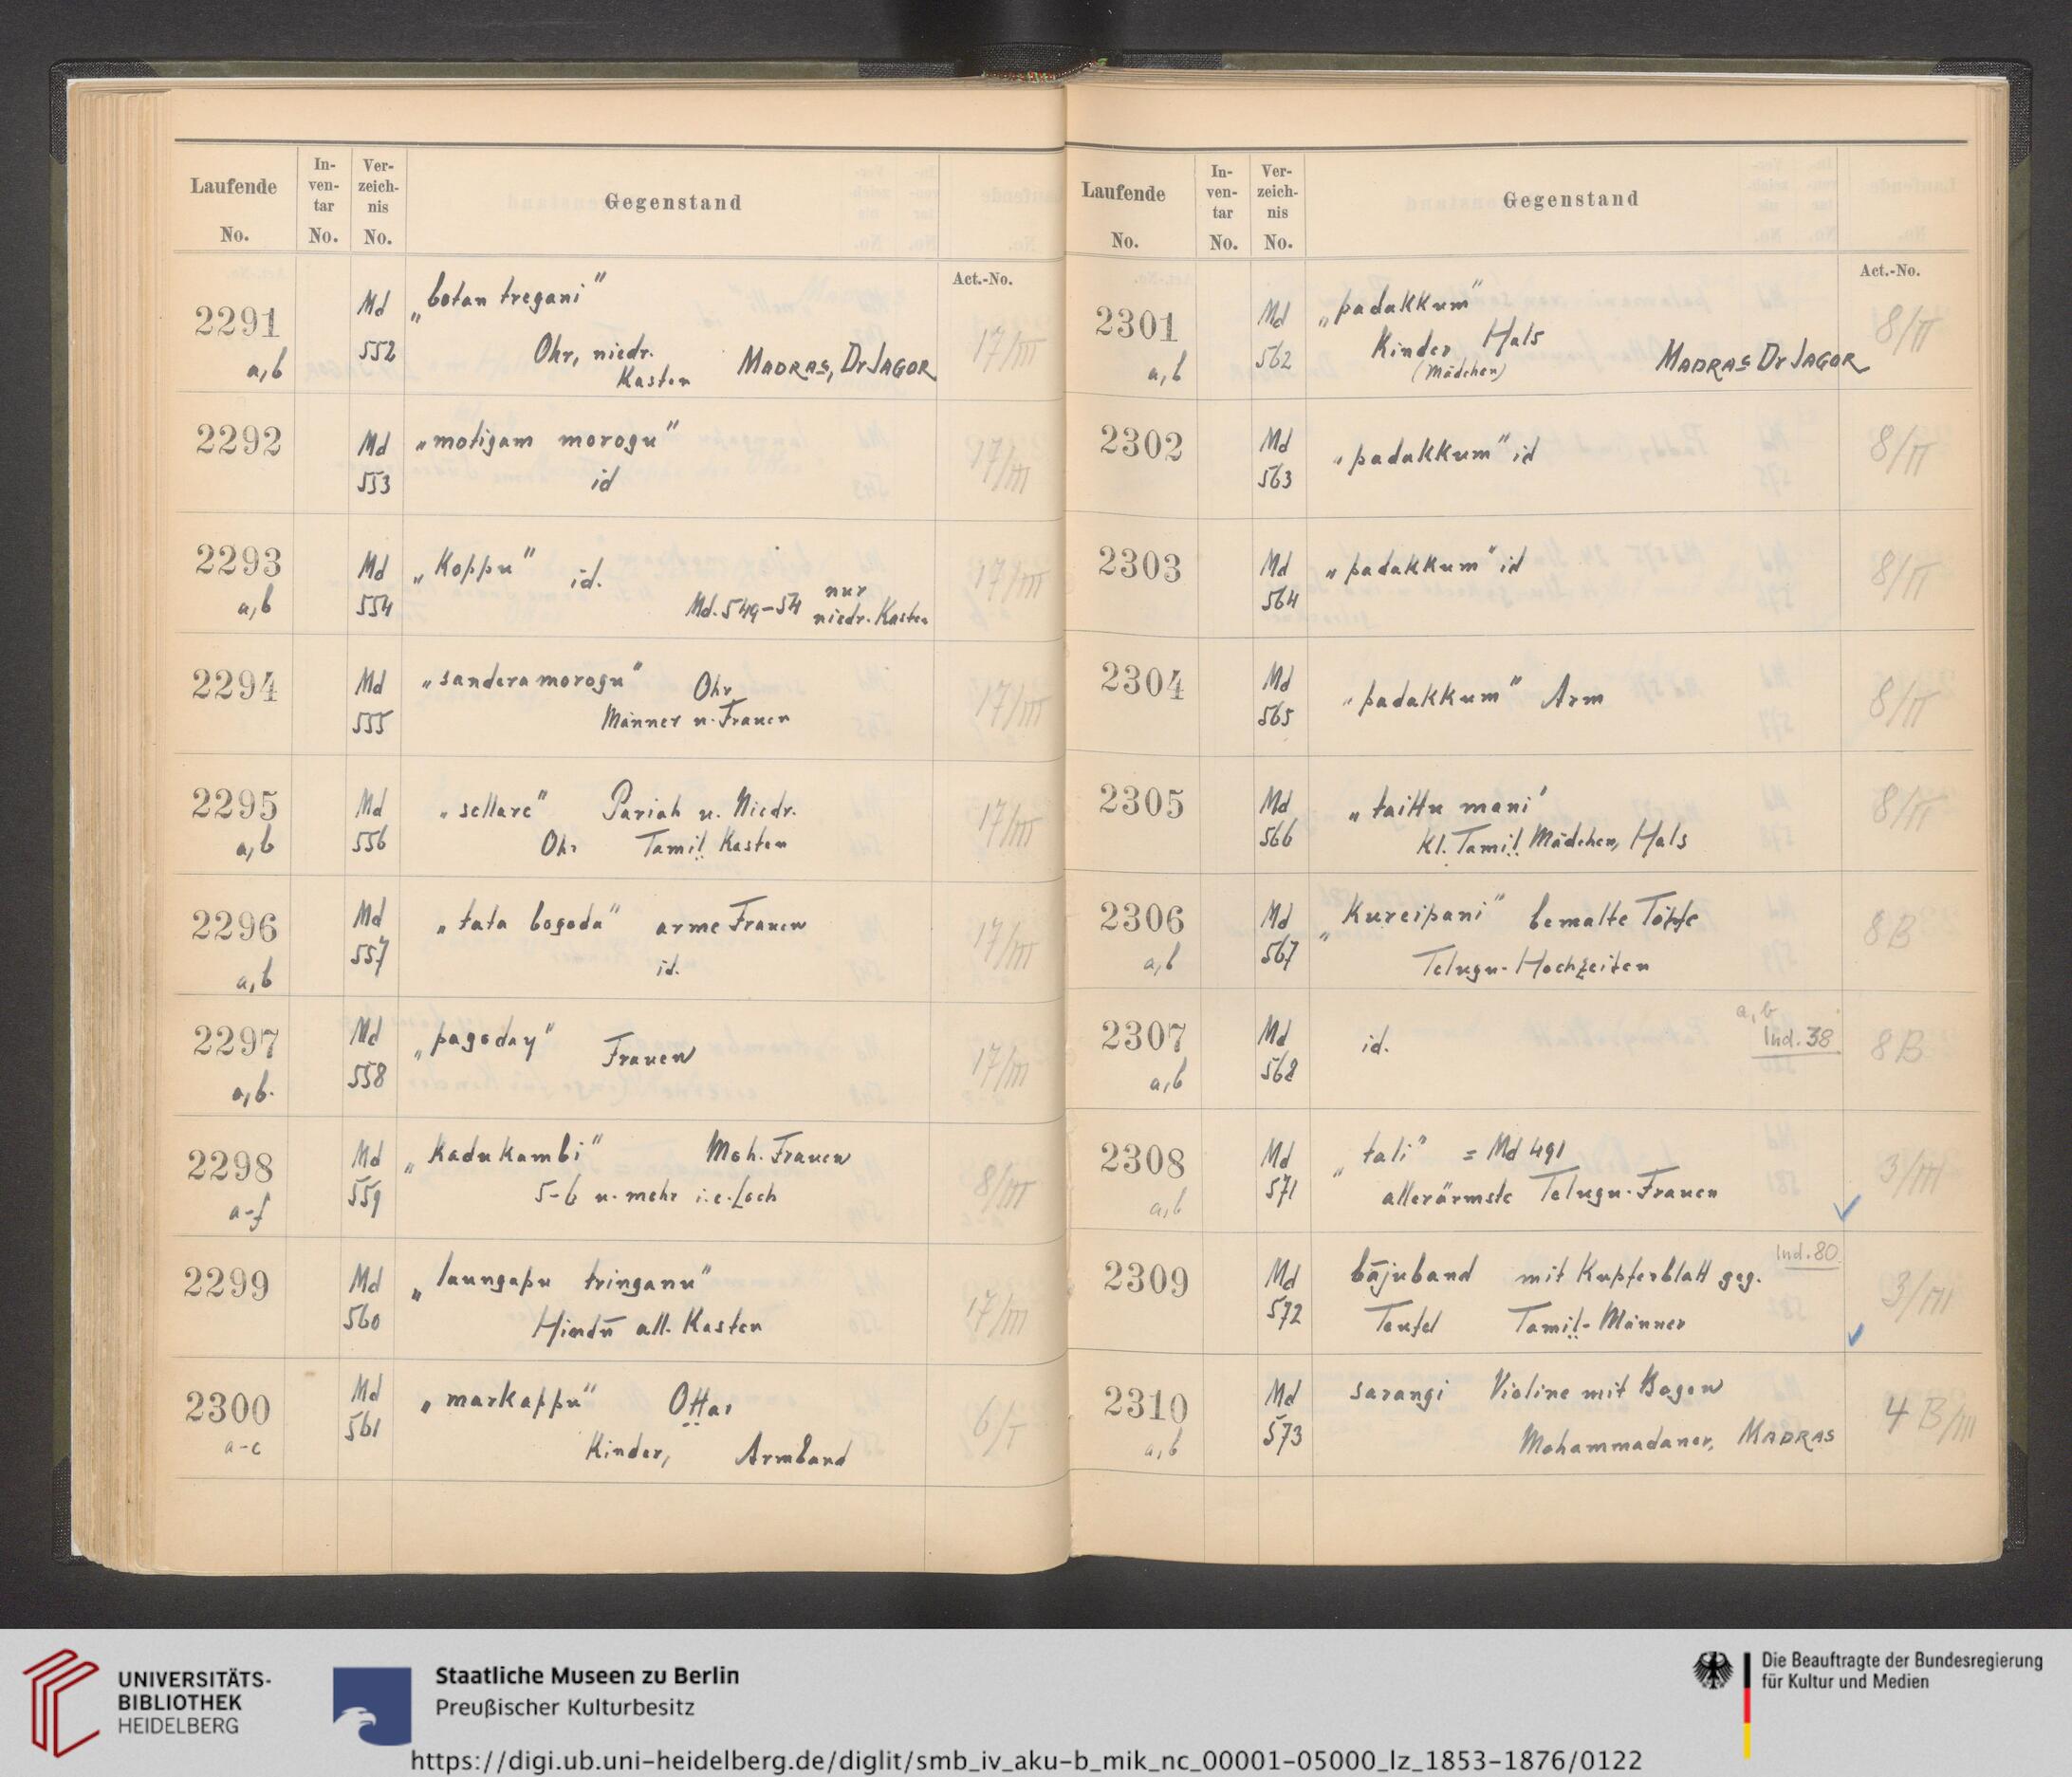 Laufende No.
In-ven-tar No.
Ver-zeich-nis No.
Gegenstand
Act.-No.
2291 a,b
Md 552
„botan tregani"
Ohr, niedr. Kasten
MADRAS, Dr JAGOR
17/III
2292
Md 553
„motigam morogu"
id
17/III
2293 a,b
Md 554
„Koppu" id.
Md. 549-54 nur niedr. Kasten
17/III
2294
Md 555
„sandera morogu" Ohr,
Männer u. Frauen
17/III
2295 a,b
Md 556
„sellare" Pariah u. Niedr.
Ohr Tamil Kasten
17/III
2296 a,b
Md 557
„tata bogoda" arme Frauen
id.
17/III
2297 a,b.
Md 558
„pagoday" Frauen
17/III
2298 a-f
Md 559
„Kadukambi" Moh. Frauen
5-6 u. mehr i.e. Loch
8/III
2299
Md 560
„laungapu tringanu"
Hindū all. Kasten
17/III
2300 a-c
Md 561
„markappu" Ottar
Kinder, Armband
6/I
Laufende No.
In-ven-tar No.
Ver-zeich-nis No.
Gegenstand
Act.-No.
2301 a,b
Md 562
„padakkum"
Kinder Hals
(Mädchen)
MADRAS Dr JAGOR
8/II
2302
Md 563
„padakkum" id
8/II
2303
Md 564
„padakkum" id
8/II
2304
Md 565
„padakkum" Arm
8/II
2305
Md 566
„taittu mani"
Kl. Tamil Mädchen, Hals
8/II
2306 a,b
Md 567
„Kureipani" bemalte Töpfe
Telugu-Hochzeiten
8B
2307 a,b
Md 568
id.
a,b
Ind. 38
8B
2308 a,b
Md 571
„tali" = Md 491
allerärmste Telugu-Frauen
3/III
2309
Md 572
Ind. 80
bājuband mit Kupferblatt geg.
Teufel Tamil-Männer
3/III
2310 a,b
Md 573
sarangi Violine mit Bogen
Mohammadaner, MADRAS
4 B/III
UNIVERSITÄTS-
BIBLIOTHEK
HEIDELBERG
Staatliche Museen zu Berlin
Preußischer Kulturbesitz
Die Beauftragte der Bundesregierung
für Kultur und Medien
https://digi.ub.uni-heidelberg.de/diglit/smb_iv_aku-b_mik_nc_00001-05000_lz_1853-1876/0122